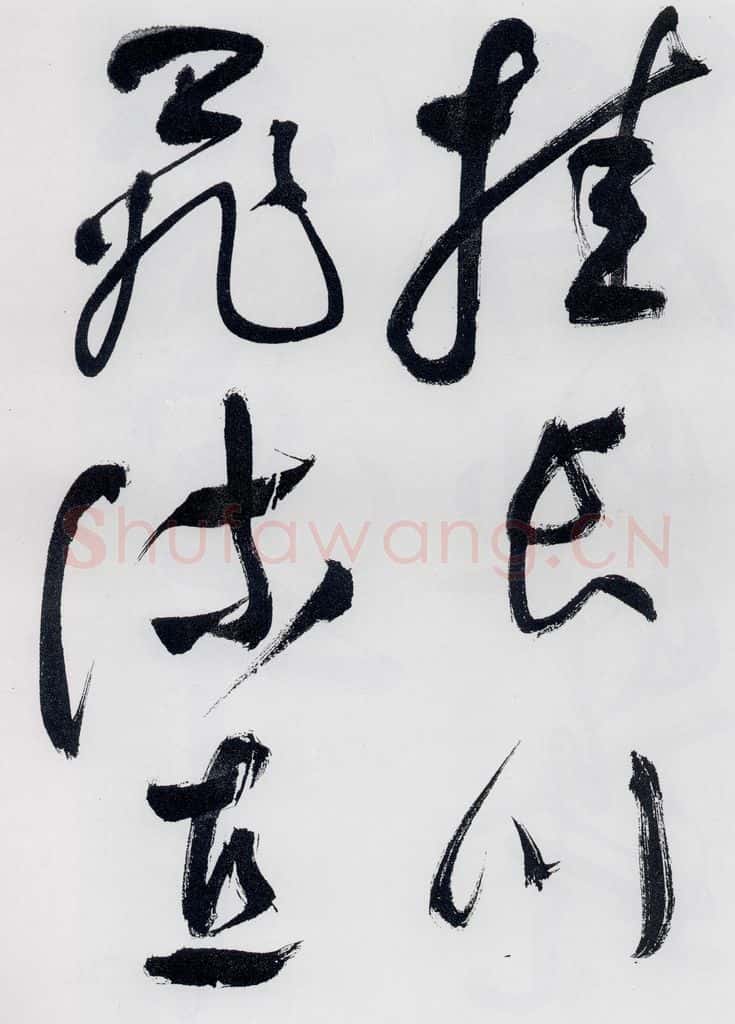 挂长川
飛流直
Shufawang.CN